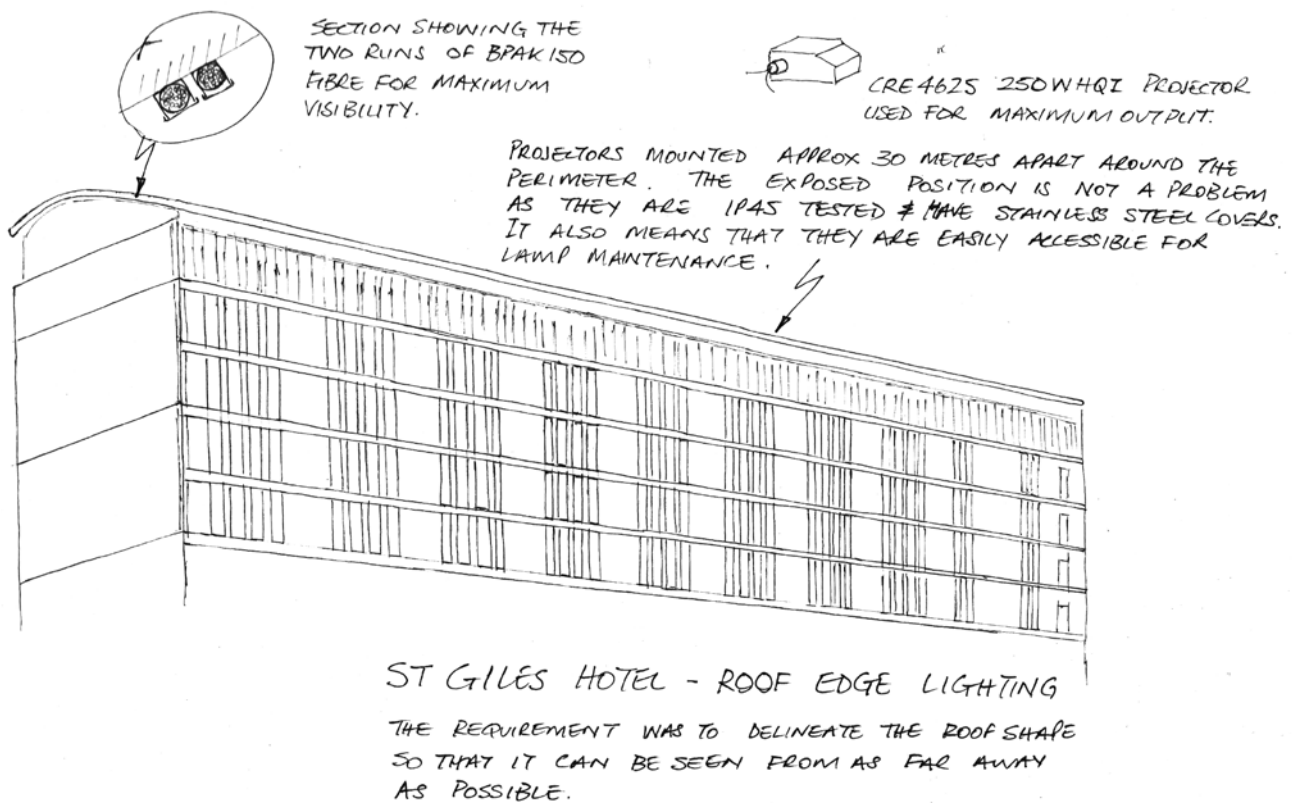 SECTION SHOWING THE
TWO RUNS OF BPAK 150
FIBRE FOR MAXIMUM
VISIBILITY.
CRE4625 250W HQI PROJECTOR
USED FOR MAXIMUM OUTPUT.
PROJECTORS MOUNTED APPROX 30 METRES APART AROUND THE
PERIMETER. THE EXPOSED POSITION IS NOT A PROBLEM
AS THEY ARE IP45 TESTED & HAVE STAINLESS STEEL COVERS.
IT ALSO MEANS THAT THEY ARE EASILY ACCESSIBLE FOR
LAMP MAINTENANCE.
ST GILES HOTEL - ROOF EDGE LIGHTING
THE REQUIREMENT WAS TO DELINEATE THE ROOF SHAPE
SO THAT IT CAN BE SEEN FROM AS FAR AWAY
AS POSSIBLE.